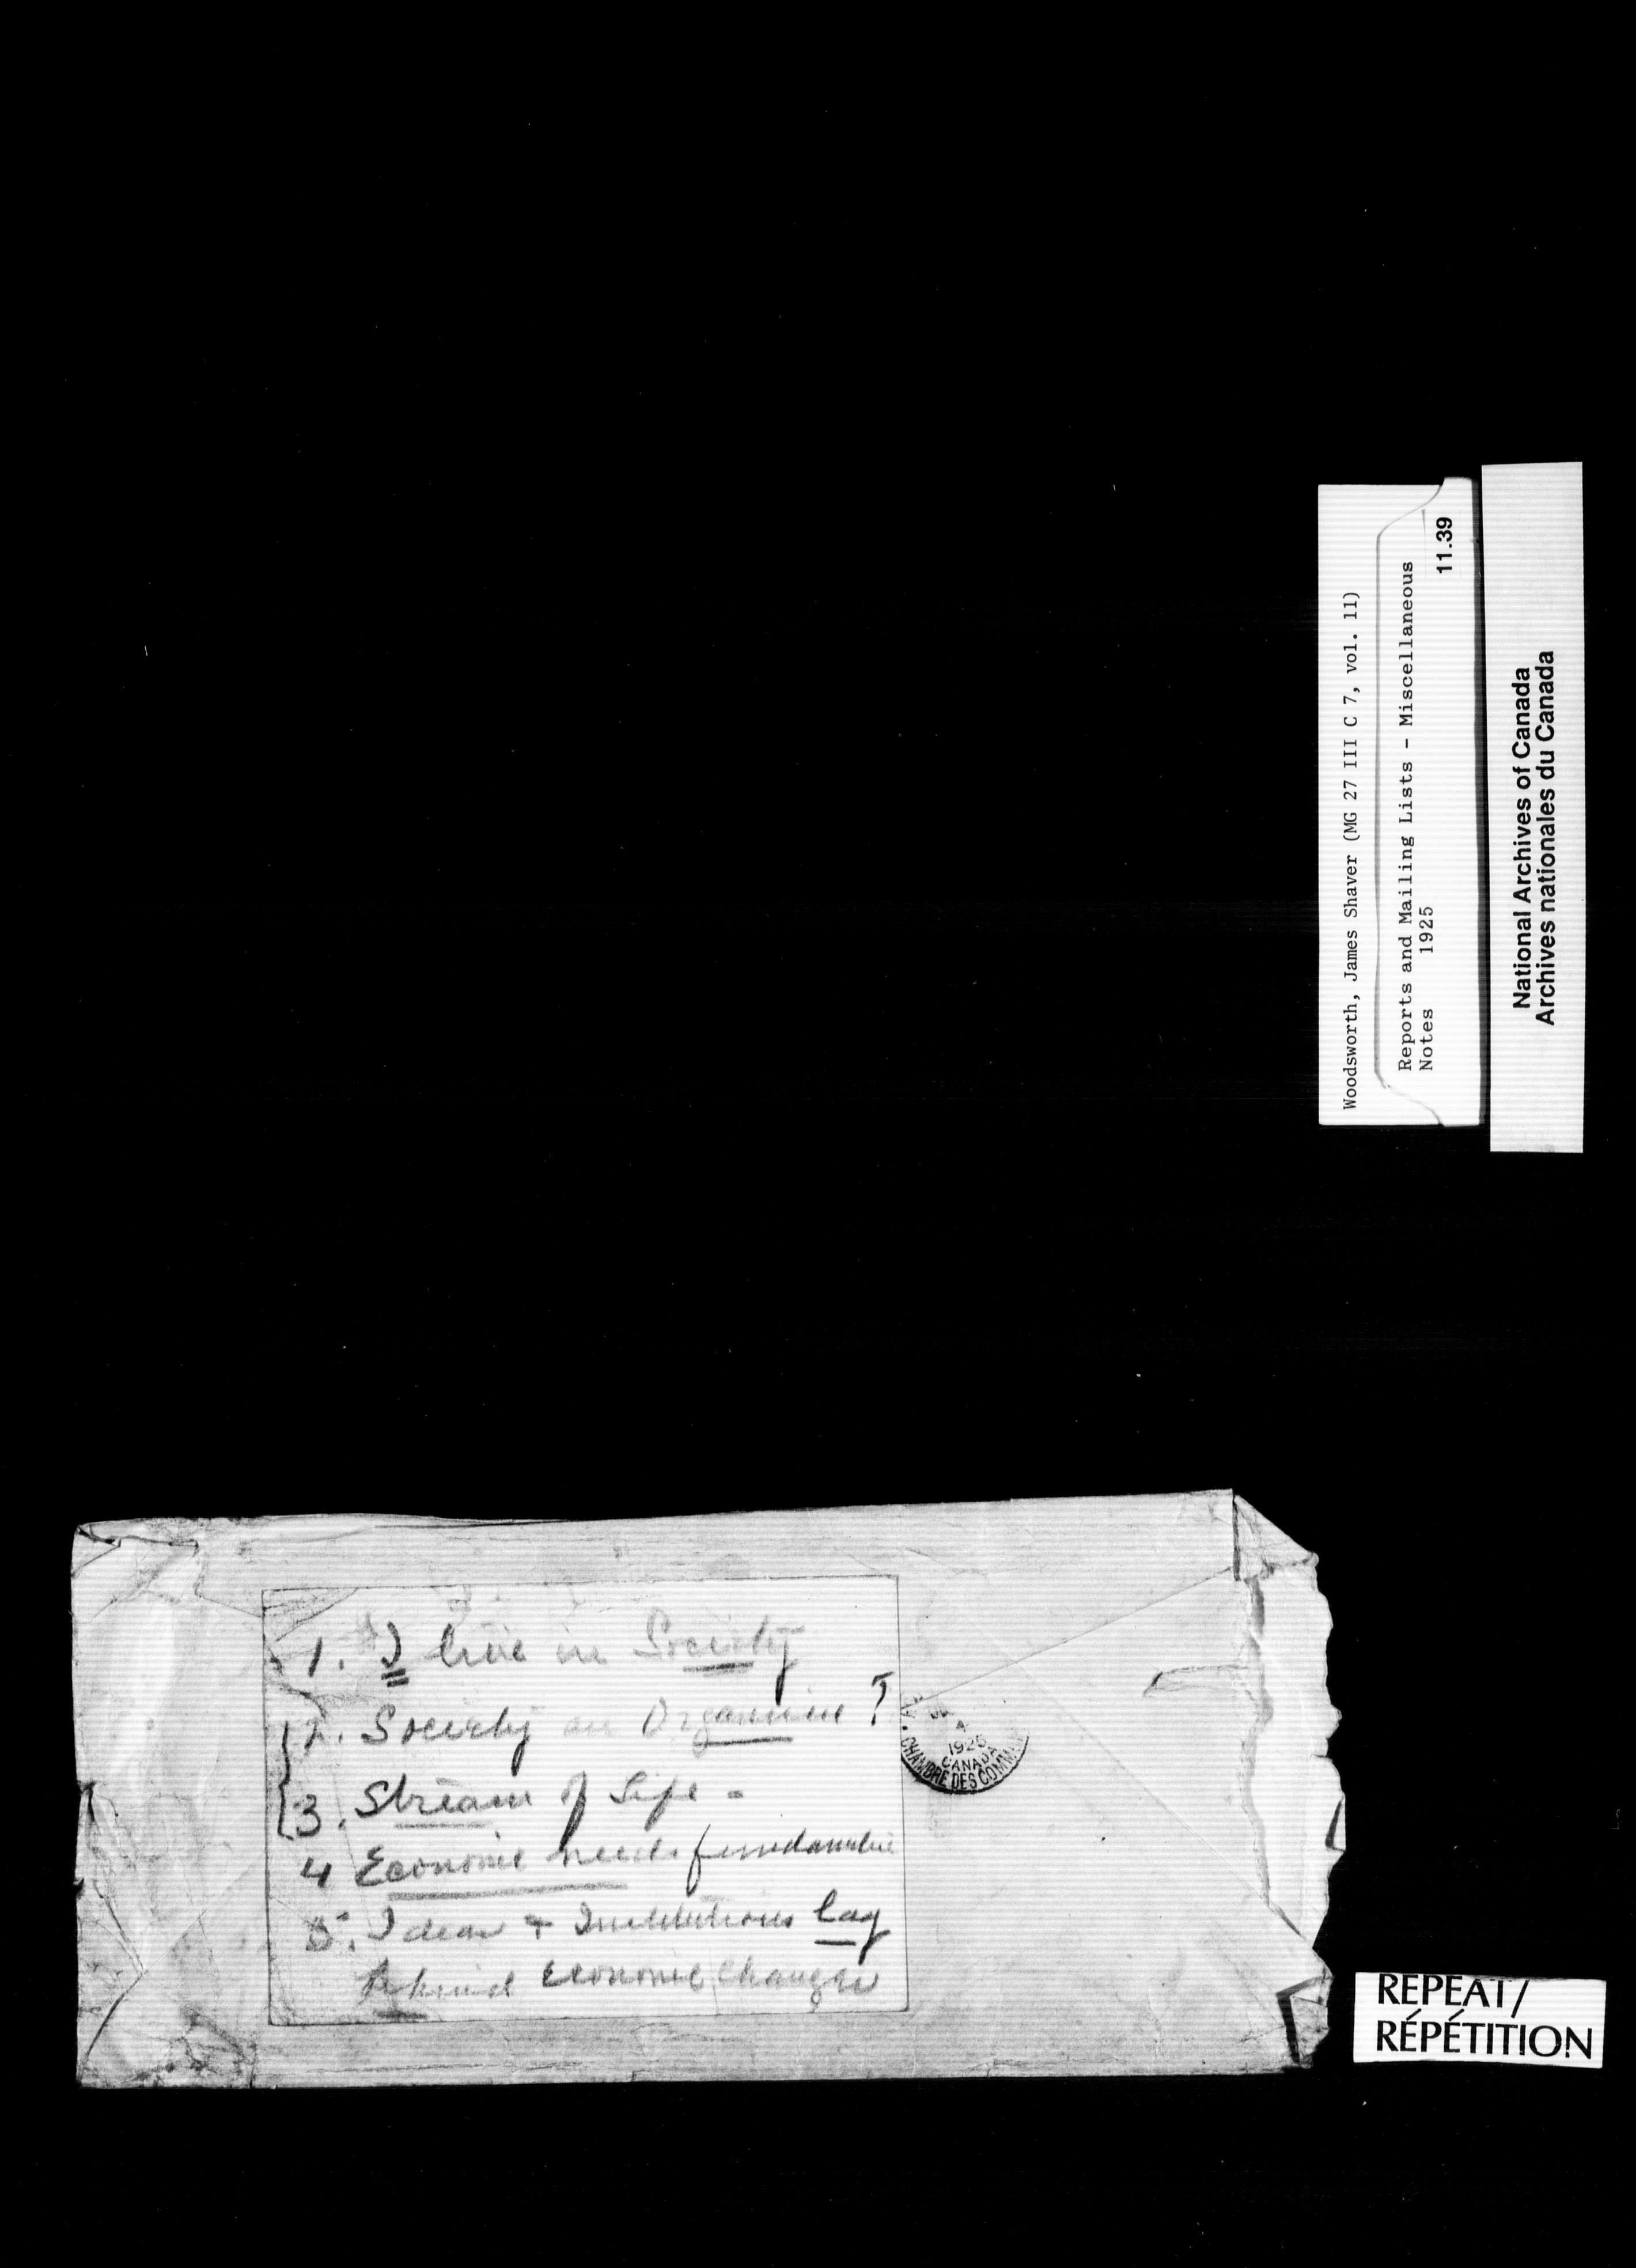 Woodsworth, James Shaver (MG 27 III C 7, vol. 11)
Reports and Mailing Lists - Miscellaneous
Notes 1925
11.39
National Archives of Canada
Archives nationales du Canada
1. I live in Society
2. Society an Organism
3. Stream of Life -
4 Economic needs fundamental
5. Ideas + Institutions lag
behind Economic Changes
4
CANADA
CHAMBRE DES COMM
REPEAT/
RÉPÉTITION